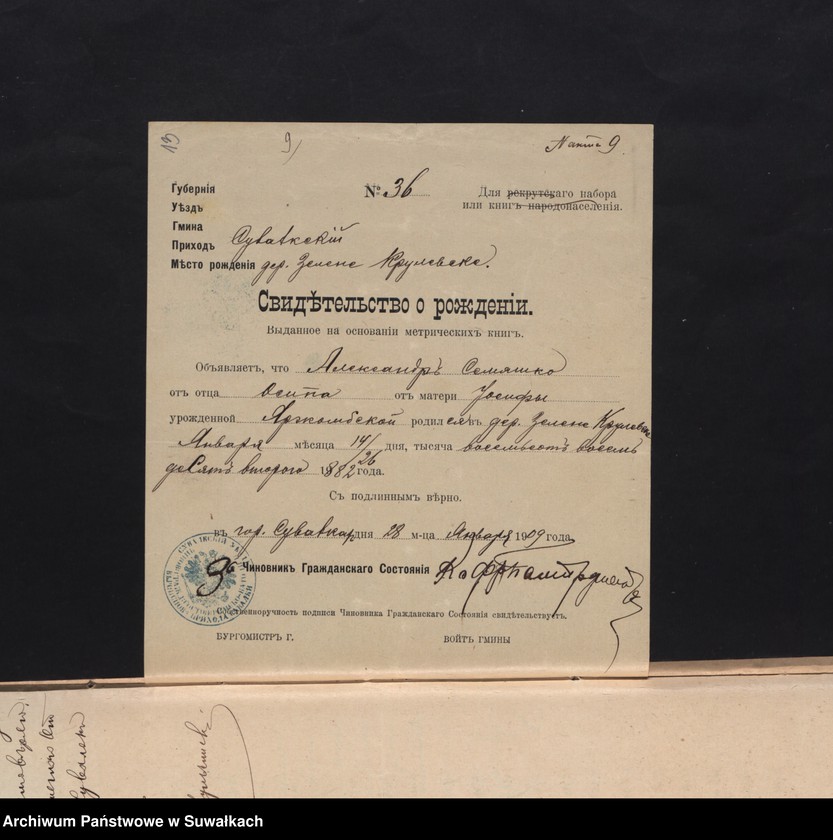 13
9
N акта 9.
Губернія
№ 36
Для рекрутскаго набора
Уѣздъ
или книгъ народонаселенія.
Гмина
Приходъ Сувалкскій
Мѣсто рожденія дер. Зелене Крулевске.
Свидѣтельство о рожденіи.
Выданное на основаніи метрическихъ книгъ.
Объявляетъ, что Александръ Семяшко
отъ отца Осипа отъ матери Іосифы
урожденной родился въ дер. Зелене Крулевске
Января мѣсяца 14/26 дня, тысяча восемьсотъ восемь
десятъ второго 1882 года.
Съ подлиннымъ вѣрно.
въ гор. Сувалкахъ дня 28 м-ца Января 1909 года
За Чиновникъ Гражданскаго Состоянія
Собственноручность подписи Чиновника Гражданскаго Состоянія свидѣтельствуетъ.
БУРГОМИСТРЪ Г.
ВОЙТЪ ГМИНЫ
Archiwum Państwowe w Suwałkach